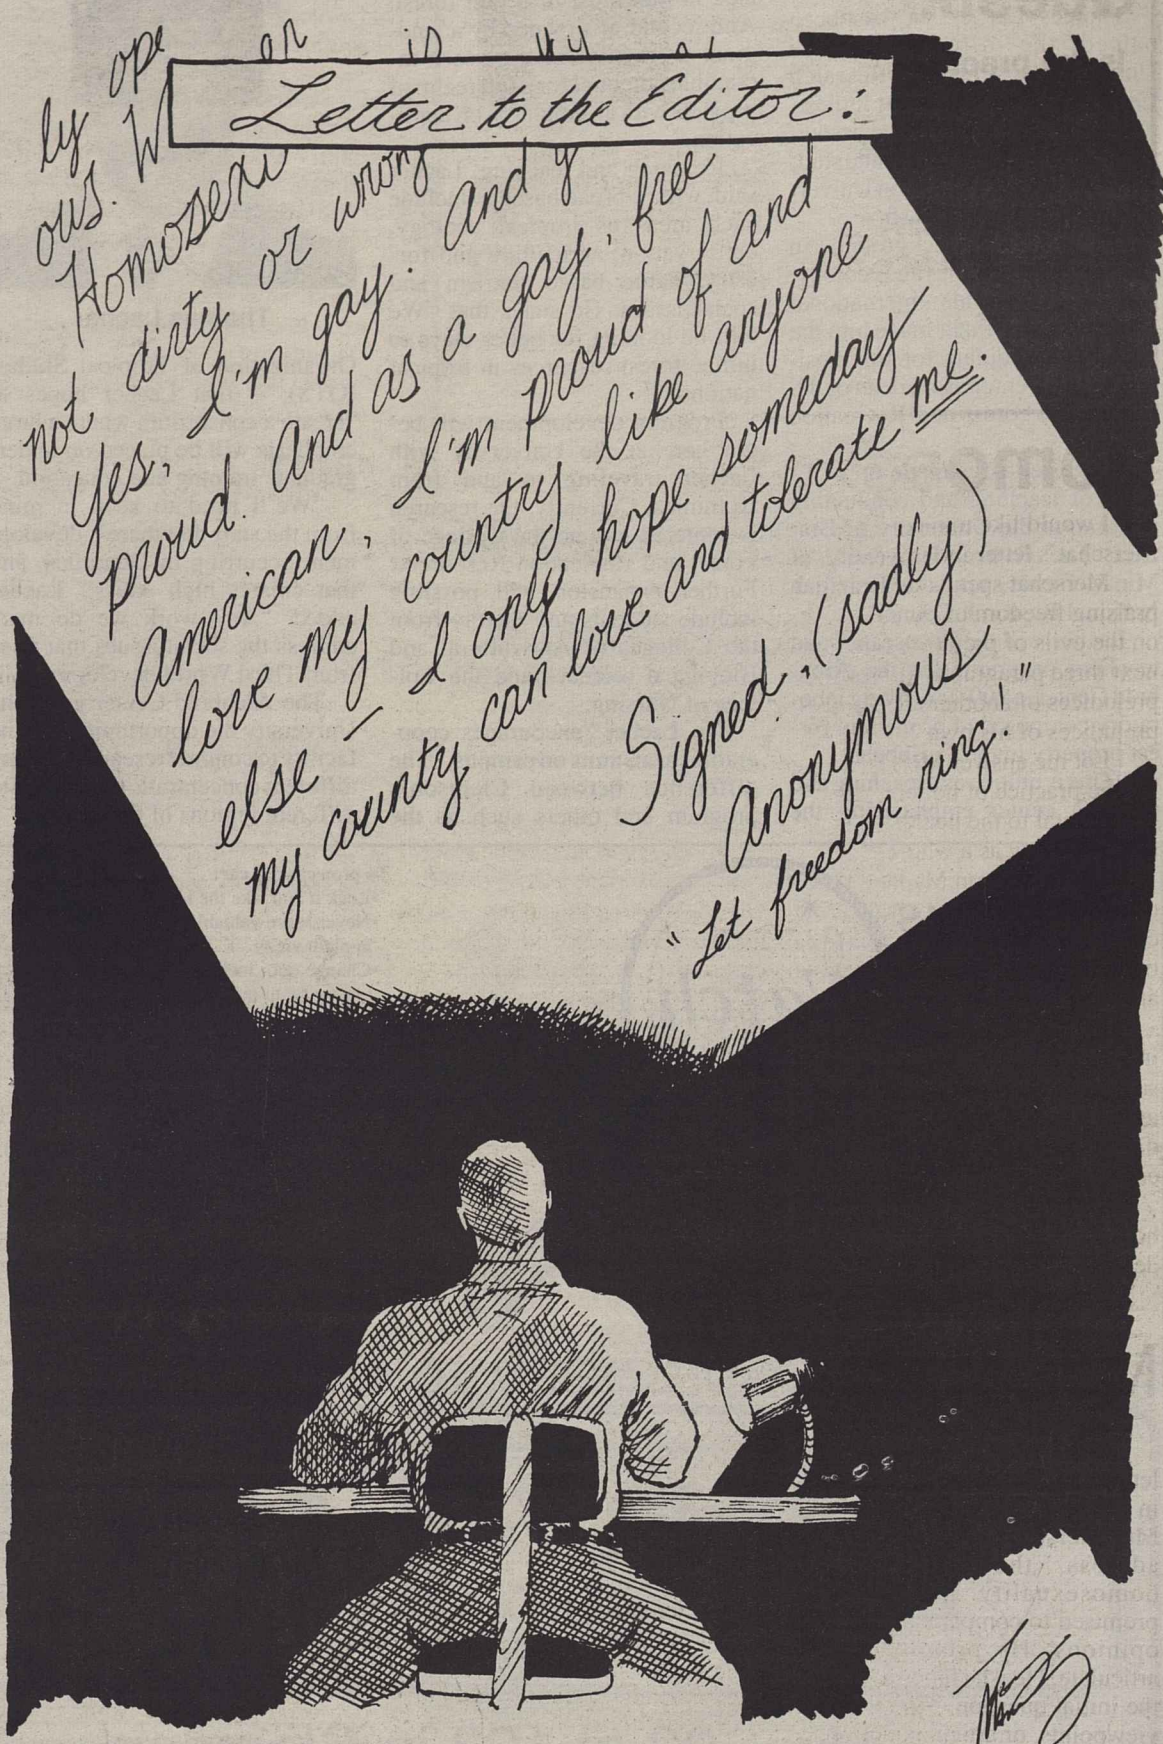 Letter to the Editor:
ly ope
ous. W
Homosexu
not dirty or wrong
Yes, I'm gay. And y
proud. And as a gay, free
American, I'm proud of and
love my country like anyone
else — I only hope someday
my county can love and tolerate me.
Signed, (sadly)
Anonymous
"Let freedom ring!"